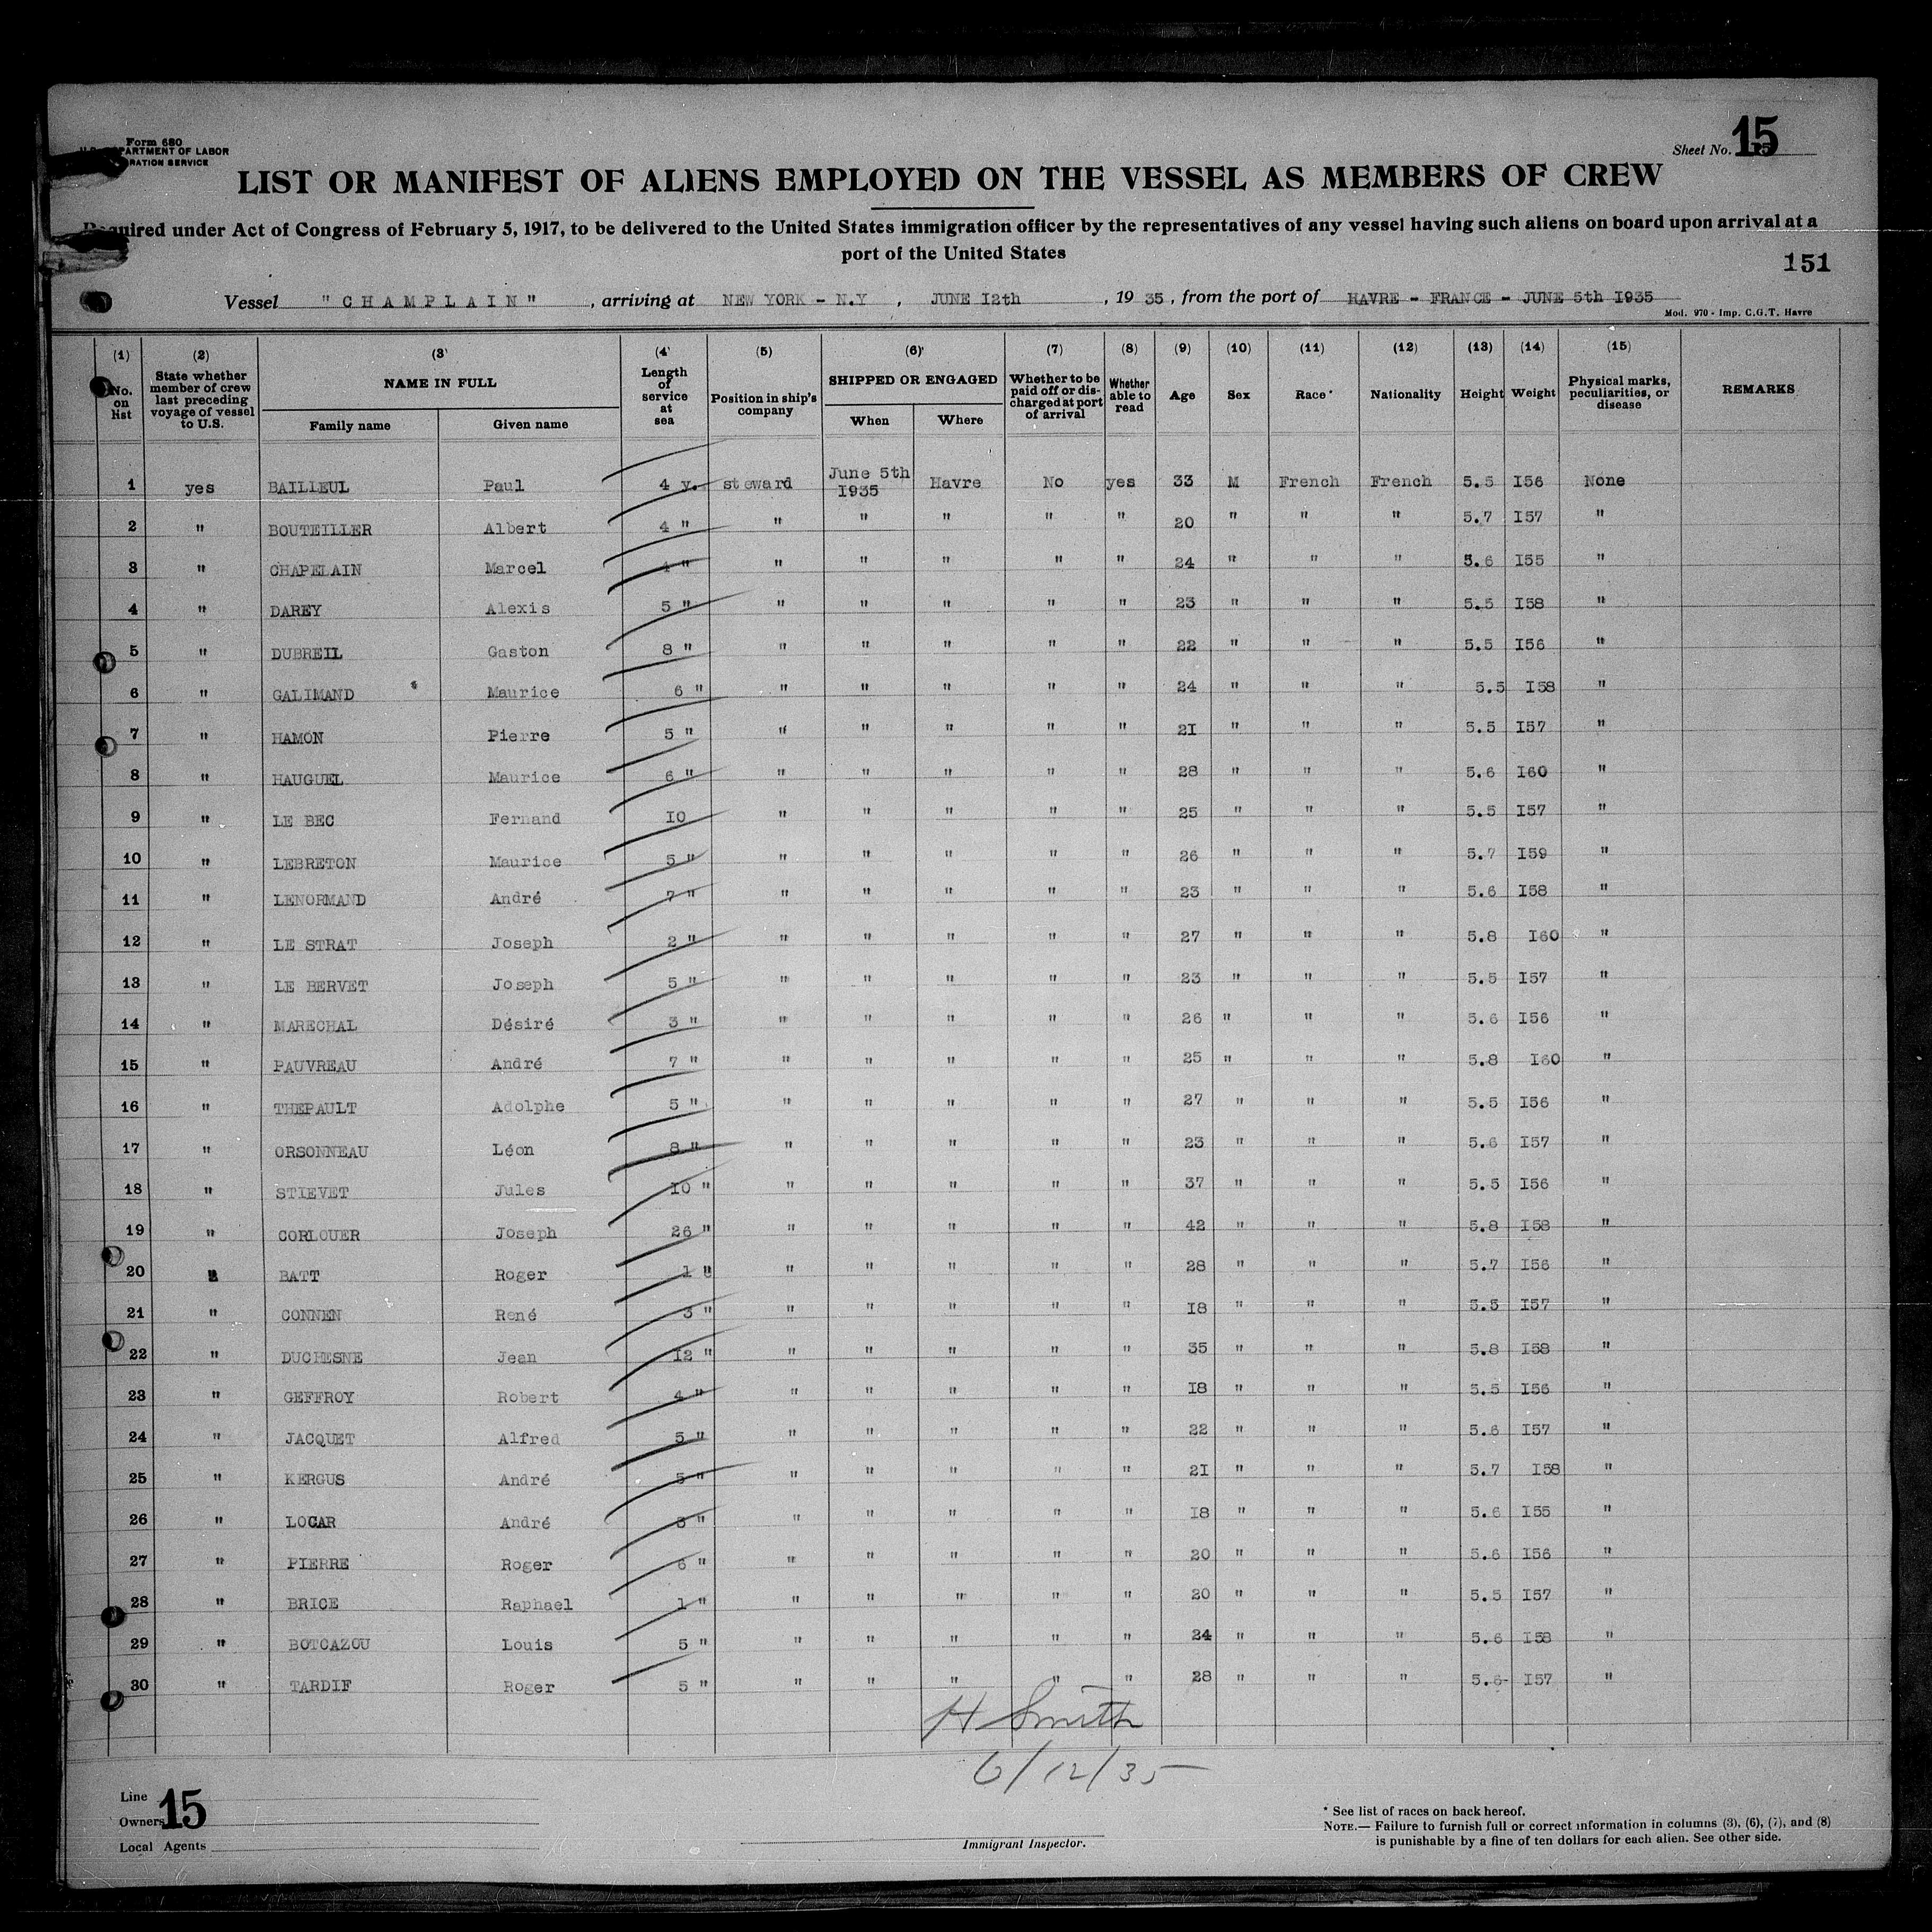 Form 680
U.S. DEPARTMENT OF LABOR
IMMIGRATION SERVICE
Sheet No. 15
LIST OR MANIFEST OF ALIENS EMPLOYED ON THE VESSEL AS MEMBERS OF CREW
Required under Act of Congress of February 5, 1917, to be delivered to the United States immigration officer by the representatives of any vessel having such aliens on board upon arrival at a
port of the United States
151
Vessel "CHAMPLAIN", arriving at NEW YORK - N.Y, JUNE I2th, 1935, from the port of HAVRE - FRANCE - JUNE 5th I935
Mod. 970 - Imp. C.G.T. Havre
(1) (2) (3) (4) (5) (6) (7) (8) (9) (10) (11) (12) (13) (14) (15)
No. on list State whether member of crew last preceding voyage of vessel to U.S. NAME IN FULL Length of service at sea Position in ship's company SHIPPED OR ENGAGED Whether to be paid off or discharged at port of arrival Whether able to read Age Sex Race* Nationality Height Weight Physical marks, peculiarities, or disease REMARKS
Family name Given name When Where
1 yes BAILLEUL Paul 4 y. steward June 5th I935 Havre No yes 33 M French French 5.5 I56 None
2 " BOUTEILLER Albert 4 " " " " " " 20 " " " 5.7 I57 "
3 " CHAPELAIN Marcel 4 " " " " " " 24 " " " 5.6 I55 "
4 " DAREY Alexis 5 " " " " " " 23 " " " 5.5 I58 "
5 " DUBREIL Gaston 8 " " " " " " 22 " " " 5.5 I56 "
6 " GALIMAND Maurice 6 " " " " " " 24 " " " 5.5 I58 "
7 " HAMON Pierre 5 " " " " " " 2I " " " 5.5 I57 "
8 " HAUGUEL Maurice 6 " " " " " " 28 " " " 5.6 I60 "
9 " LE BEC Fernand I0 " " " " " 25 " " " 5.5 I57 "
10 " LEBRETON Maurice 5 " " " " " " 26 " " " 5.7 I59 "
11 " LENORMAND André 7 " " " " " " 23 " " " 5.6 I58 "
12 " LE STRAT Joseph 2 " " " " " " 27 " " " 5.8 I60 "
13 " LE BERVET Joseph 5 " " " " " " 23 " " " 5.5 I57 "
14 " MARECHAL Désiré 3 " " " " " " 26 " " " 5.6 I56 "
15 " PAUVREAU André 7 " " " " " " 25 " " " 5.8 I60 "
16 " THEPAULT Adolphe 5 " " " " " " 27 " " " 5.5 I56 "
17 " ORSONNEAU Léon 8 " " " " " " 23 " " " 5.6 I57 "
18 " STIEVET Jules I0 " " " " " " 37 " " " 5.5 I56 "
19 " CORLOUER Joseph 26 " " " " " " 42 " " " 5.8 I58 "
20 " BATT Roger 1 " " " " " " 28 " " " 5.7 I56 "
21 " CONNEN René 3 " " " " " " I8 " " " 5.5 I57 "
22 " DUCHESNE Jean I2 " " " " " " 35 " " " 5.8 I58 "
23 " GEFFROY Robert 4 " " " " " " I8 " " " 5.5 I56 "
24 " JACQUET Alfred 5 " " " " " " 22 " " " 5.6 I57 "
25 " KERGUS André 5 " " " " " " 2I " " " 5.7 I58 "
26 " LOGAR André 3 " " " " " " I8 " " " 5.6 I55 "
27 " PIERRE Roger 6 " " " " " " 20 " " " 5.6 I56 "
28 " BRICE Raphael 1 " " " " " " 20 " " " 5.5 I57 "
29 " BOTCAZOU Louis 5 " " " " " " 24 " " " 5.6 I58 "
30 " TARDIF Roger 5 " " " " " " 28 " " " 5.6 I57 "
H Smith
6/12/35
Line
Owners 15
Local Agents
Immigrant Inspector.
* See list of races on back hereof.
NOTE.— Failure to furnish full or correct information in columns (3), (6), (7), and (8)
is punishable by a fine of ten dollars for each alien. See other side.